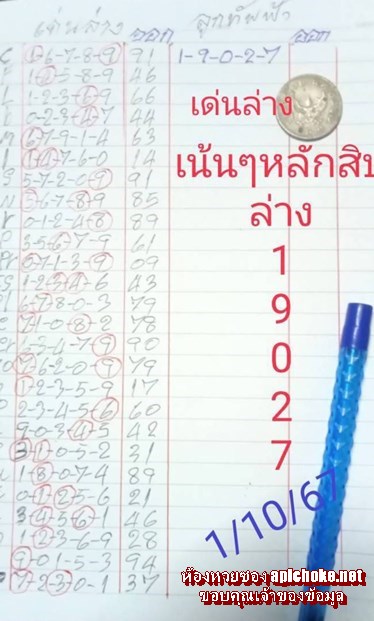 เด่นล่าง ออก ลูกทัพฟ้า ออก
1-6-7-8-9 91 1-9-0-2-7
1-0-5-8-9 46
1-2-3-6-9 66
0-2-3-4-7 44
6-7-9-1-4 63
1-4-7-6-0 14
5-7-2-0-9 91
85
0-1-2-4-8 89
3-5-6-7-9 61
0-7-1-3-9 09
1-2-3-4-6 43
6-7-8-0-3 79
7-1-0-8-2 78
6-3-4-7-9 90
7-6-2-0-9 79
1-2-3-5-9 17
2-3-4-5-6 60
9-0-3-4-5 42
3-1-0-5-2 31
1-8-0-7-4 89
0-1-2-5-6 21
3-4-5-6-1 46
1-2-3-6-9 28
9-0-1-5-3 94
7-2-3-0-1 37
เด่นล่าง
เน้นๆหลักสิบ
ล่าง
1
9
0
2
7
1/10/67
ห้องหวยซอง aplchoke.net
ขอบคุณเจ้าของข้อมูล